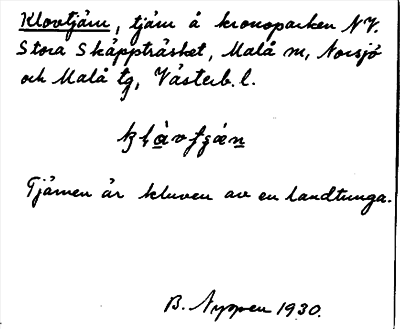 Klovtjärn, tjärn å kronoparken NV.
Stora Skäppträsket, Malå sn, Norsjö
och Malå tg, Västerb. l.
Tjärnen är kluven av en landtunga.
B. Nyppen 1930.